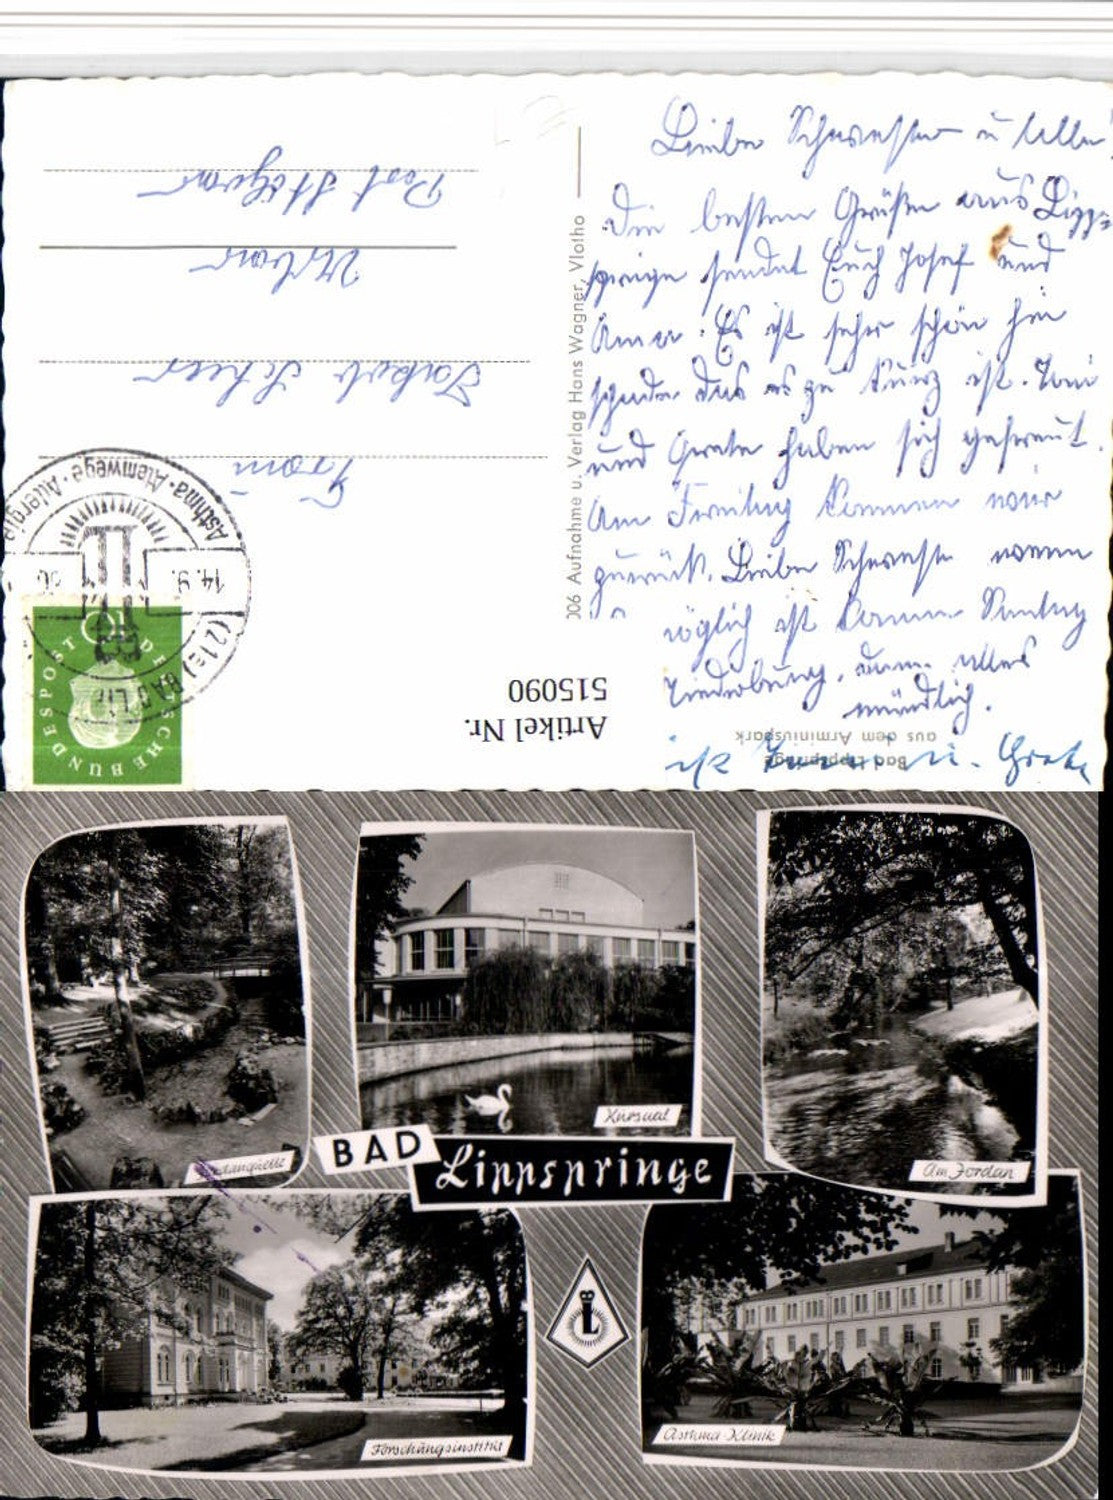 Liebe Schwester u. Alle!
Die besten Grüße aus Lipp=
springe sendet Euch Josef und
Es ist sehr schön hier
schade das es zu kurz ist.
und Grete haben sich gefreut.
Am Freitag kommen wir
zurück. Liebe Schwester wenn
möglich ist komme Sonntag
dann alles
mündlich.
Grete
Frau
Jakob
Post
306 Aufnahme u. Verlag Hans Wagner, Vlotho
Asthma · Atemwege · Allergie
14.9.
(21a) BAD LI
DEUTSCHE BUNDESPOST
Artikel Nr.
515090
Bad Lippspringe
aus dem Arminiuspark
Kursaal
Am Jordan
BAD
Lippspringe
Forschungsinstitut
Asthma-Klinik
L